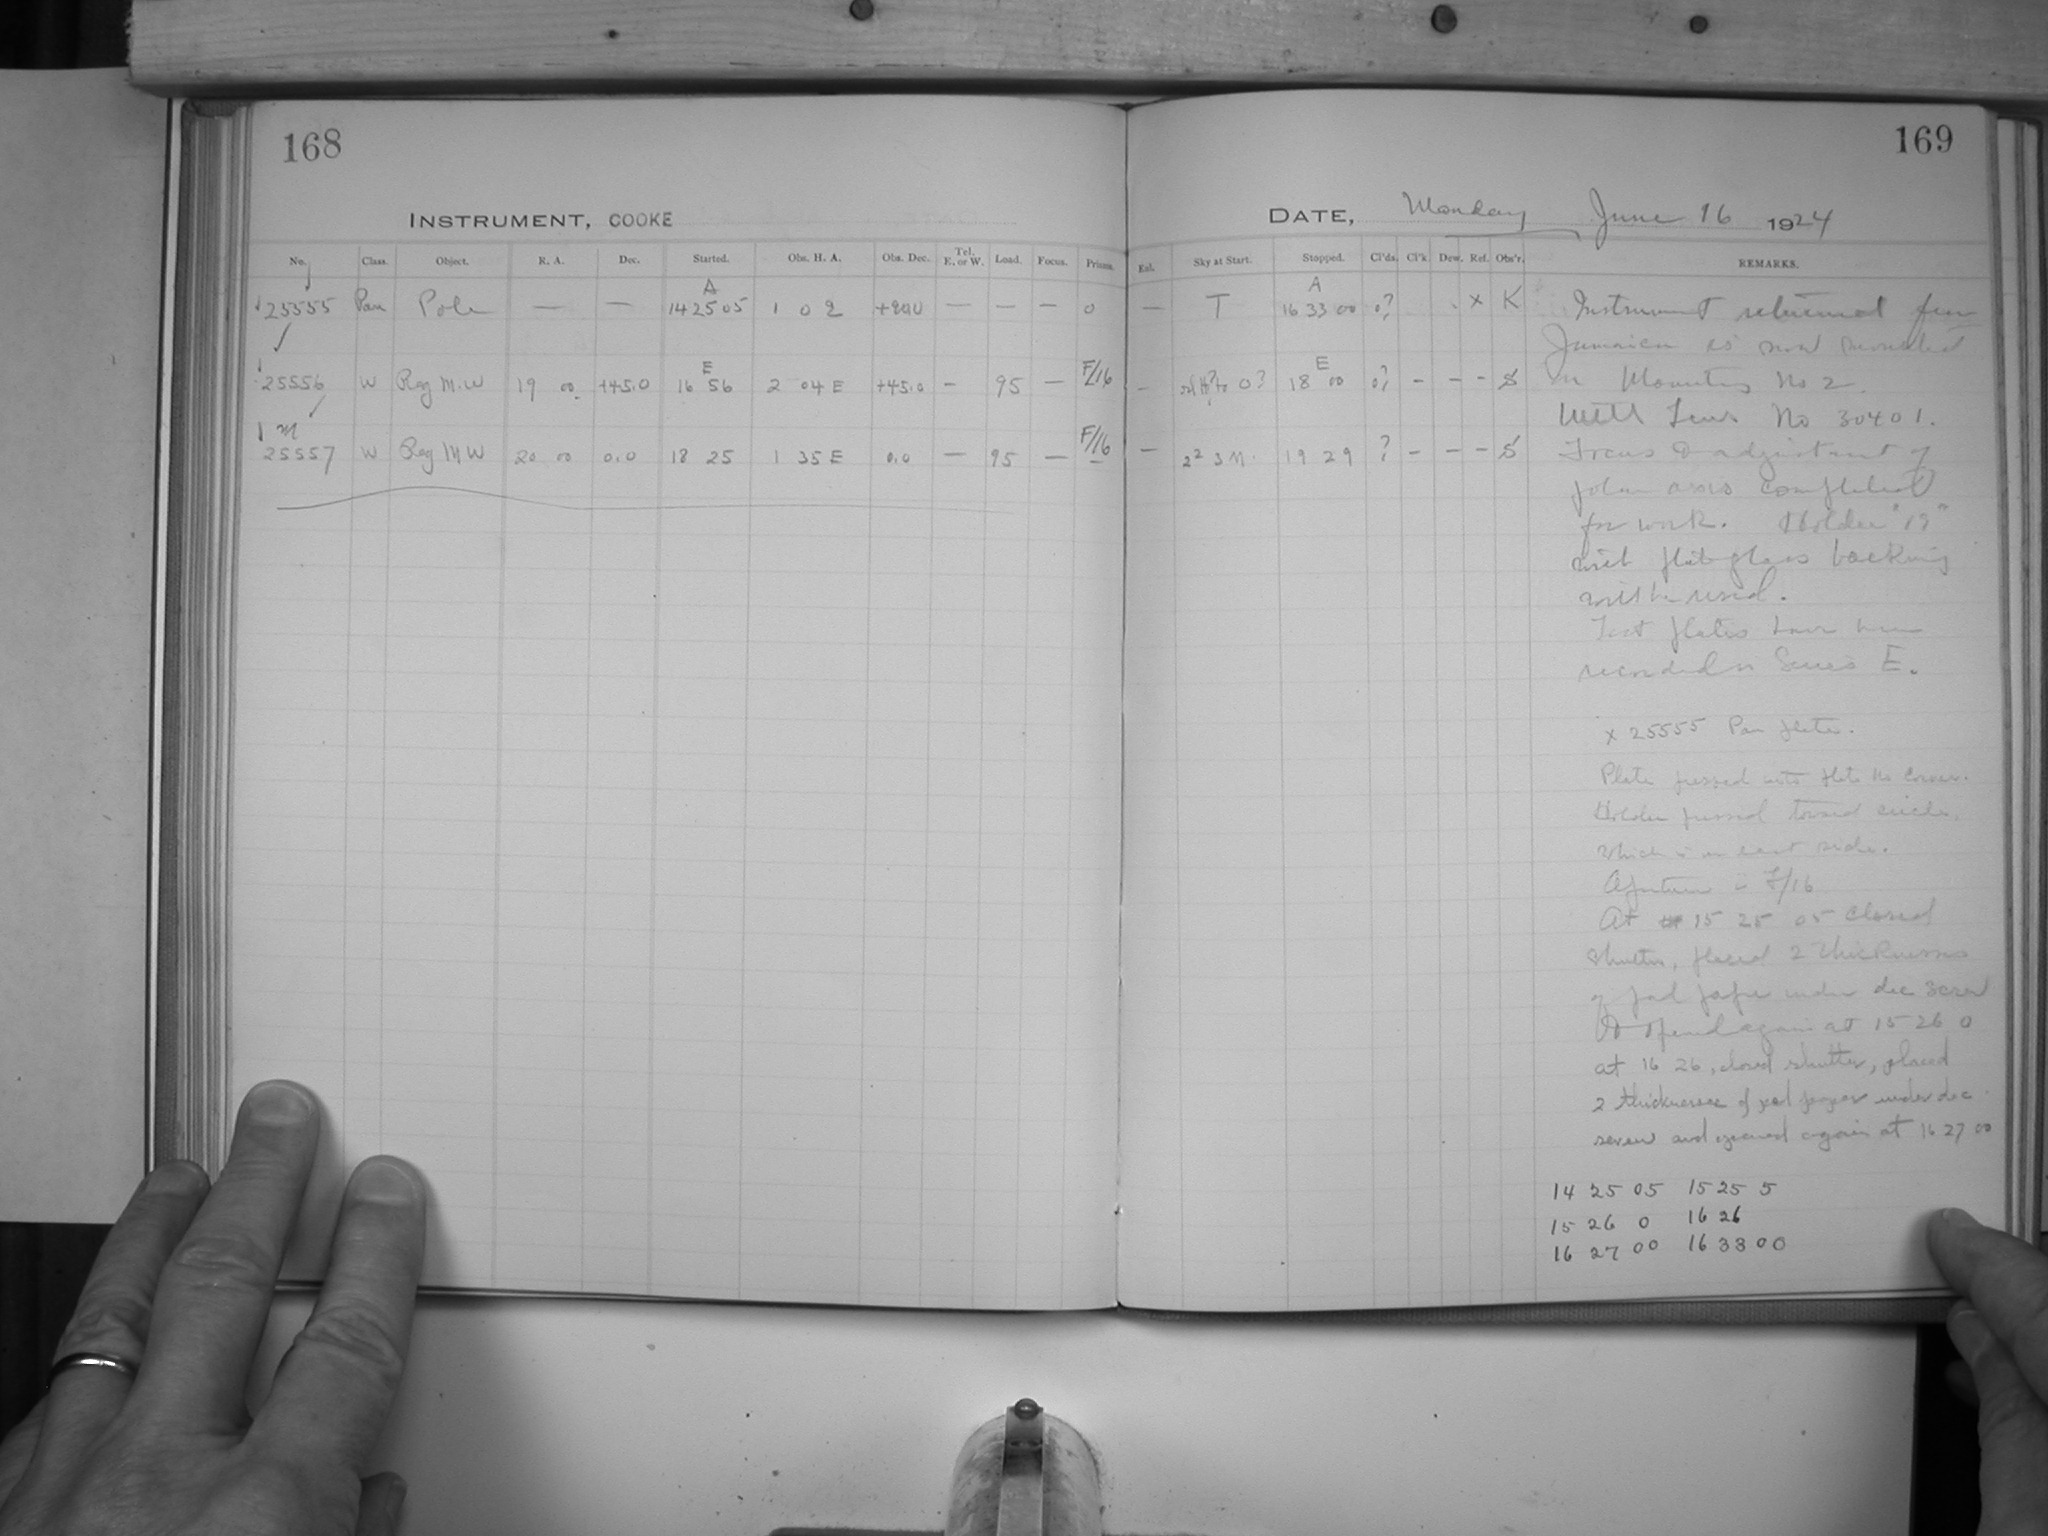 168
INSTRUMENT, COOKE
No. Class. Object. R. A. Dec. Started. Obs. H. A. Obs. Dec. Tel. E. or W. Load. Focus. Prisms.
A
25555 Pan Pole — — 14 25 05 1 0 2 — — — 0
E
25556 W Reg M.W 19 00 +45.0 16 56 2 04 E +45.0 – 95 — F/16
25557 W Reg M W 20 00 0.0 18 25 1 35 E 0.0 — 95 — F/16
169
DATE, Monday June 16 1924
Exl. Sky at Start. Stopped. Cl'ds. Cl'k. Dew. Ref. Obs'r. REMARKS.
A
— T 16 33 00 0? x K
E
– 0? 18 00 0? – – – S
— 19 29 ? – – – S
Instrument returned from
Jamaica is now mounted
on Mounting No 2.
With Lens No 30401.
Focus & adjustment of
polar axis completed
for work. Holder "19"
with plate glass backing
will be used.
Test plates have been
recorded in Series E.
x 25555 Pan plate.
Plate pressed into corner.
Holder pressed toward circle,
which is on east side.
Aperture is F/16
At 15 25 05 closed
shutter, placed 2 thicknesses
of pad paper under dec screw
& opened again at 15 26 0
at 16 26, closed shutter, placed
2 thicknesses of pad paper under dec
screw and opened again at 16 27 00
14 25 05 15 25 5
15 26 0 16 26
16 27 00 16 33 00